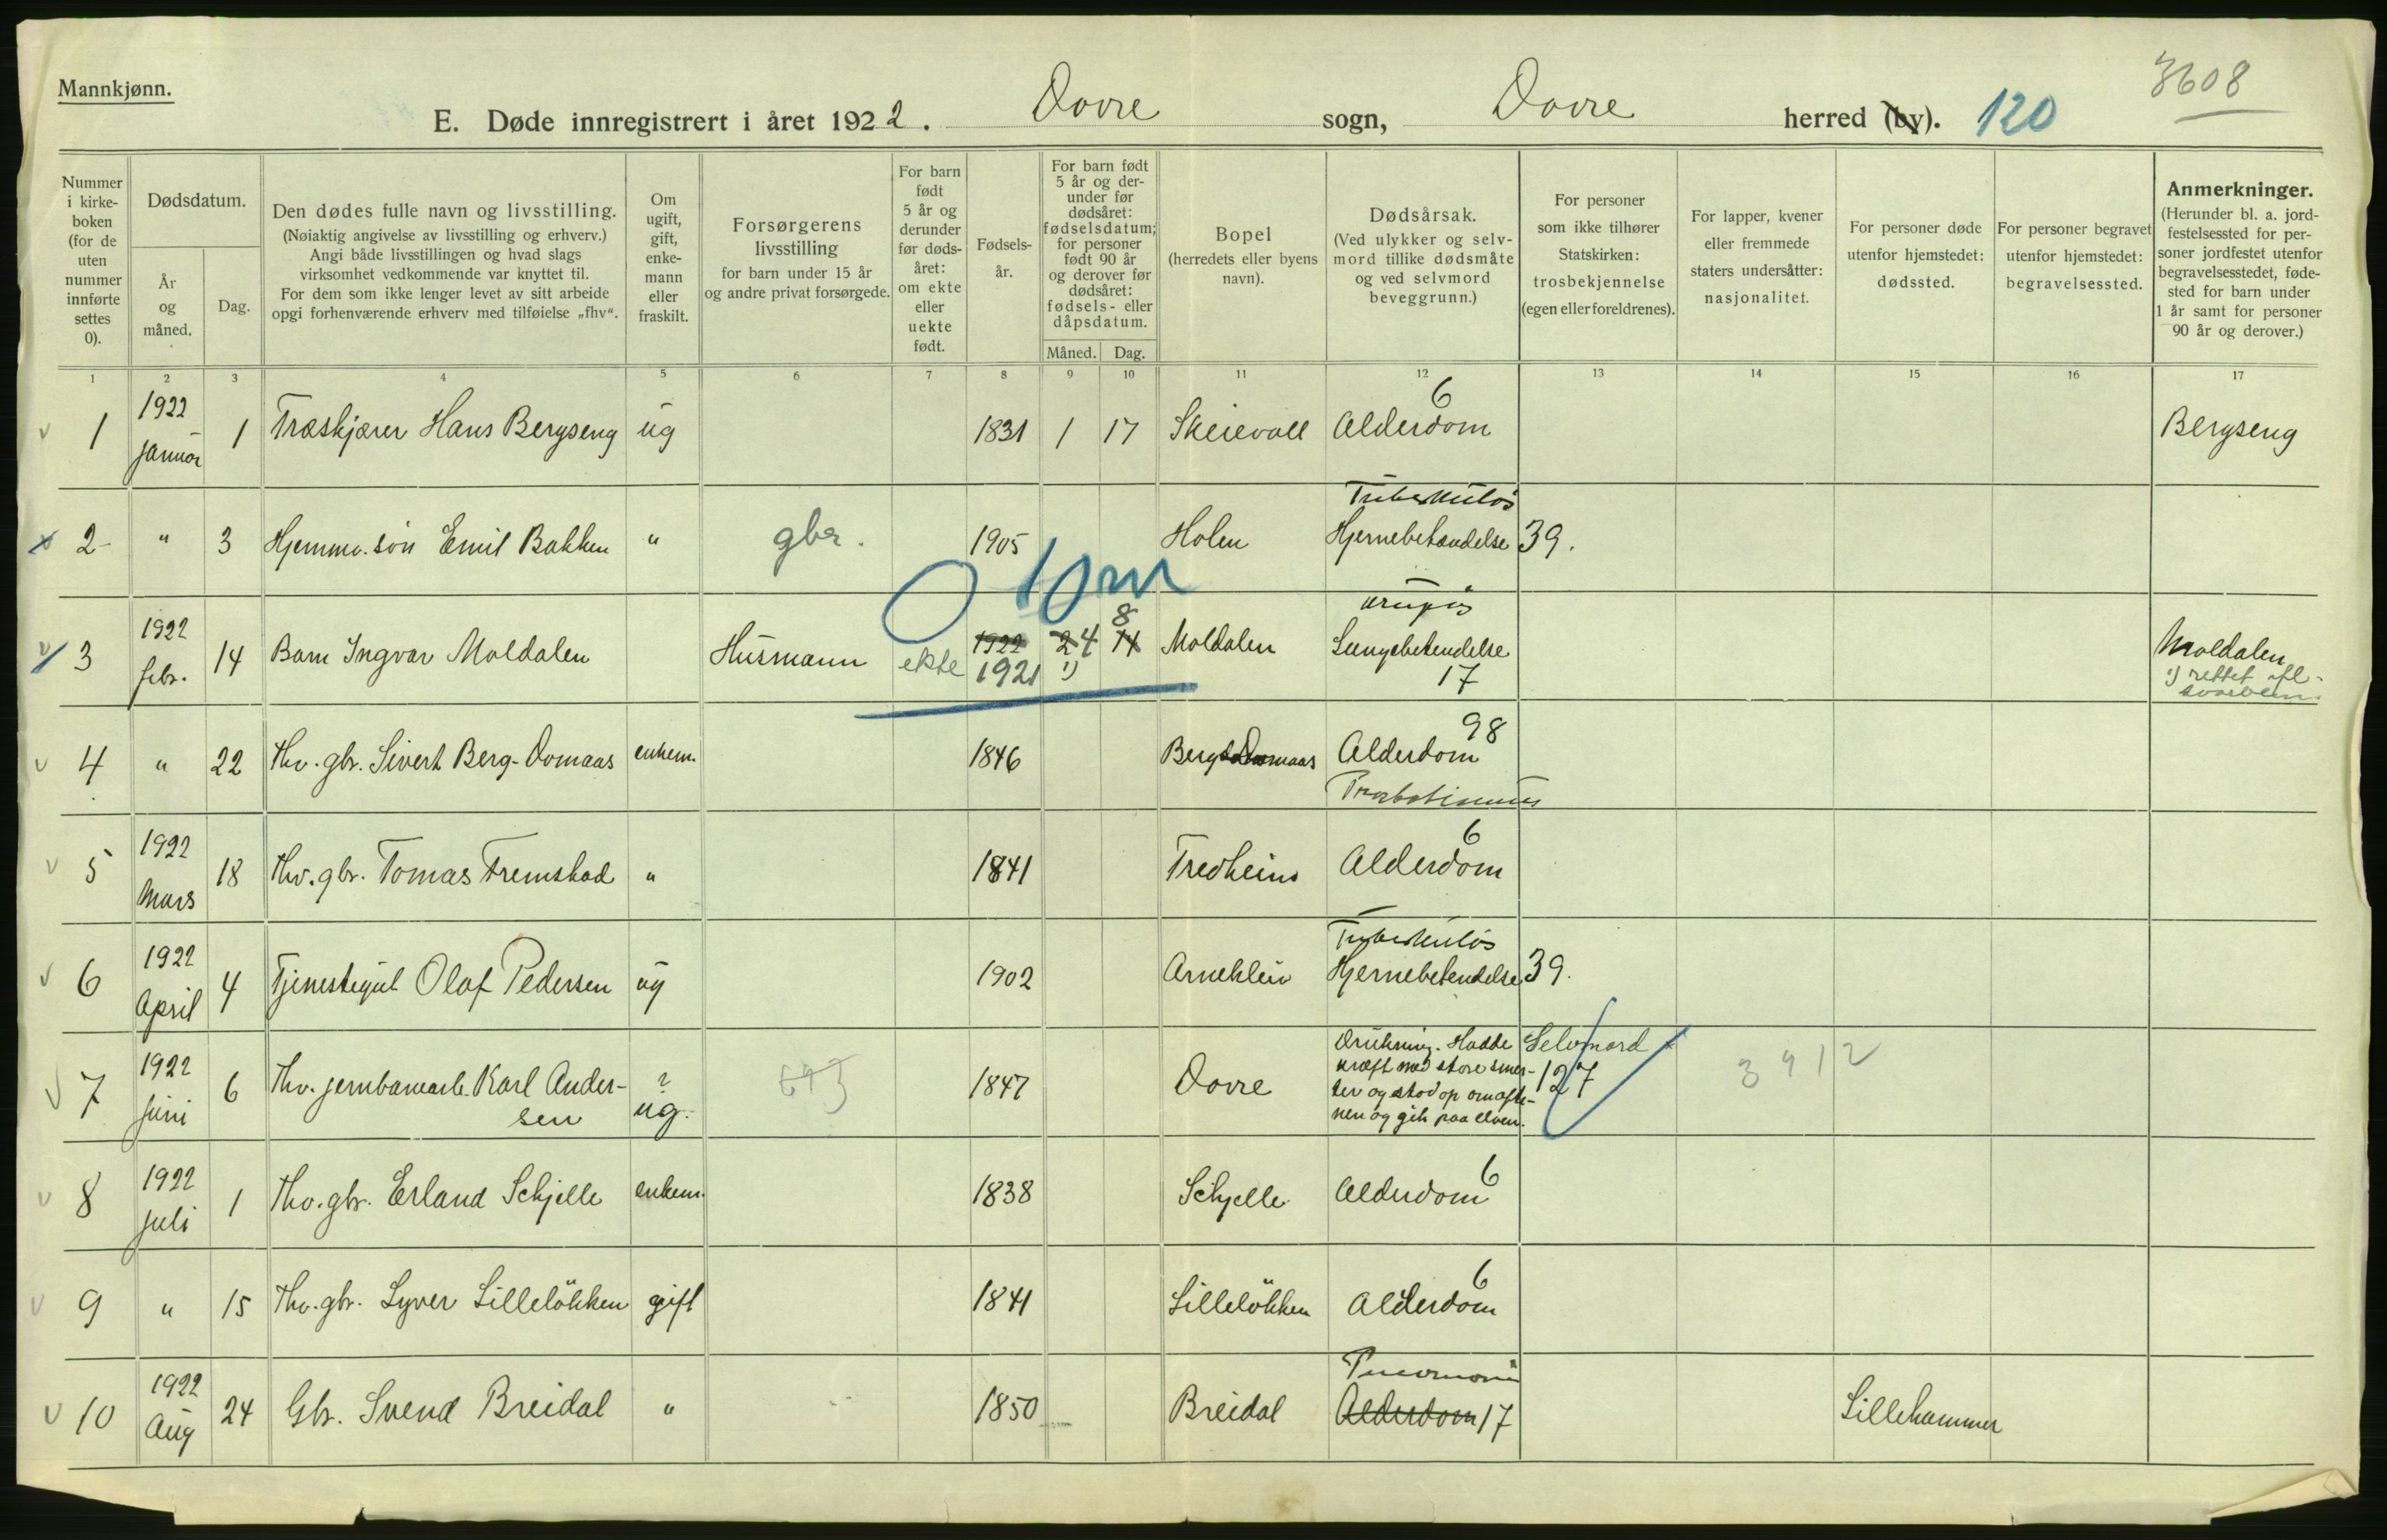 Mannkjønn.
3608
E. Døde innregistrert i året 1922. Dovre sogn, Dovre herred (by). 120
Nummer i kirke-boken (for de uten nummer innførte settes 0).
Dødsdatum.
År og måned.
Dag.
Den dødes fulle navn og livsstilling.
(Nøiaktig angivelse av livsstilling og erhverv.)
Angi både livsstillingen og hvad slags
virksomhet vedkommende var knyttet til.
For dem som ikke lenger levet av sitt arbeide
opgi forhenværende erhverv med tilføielse „fhv“.
Om ugift, gift, enke-mann eller fraskilt.
Forsørgerens livsstilling
for barn under 15 år
og andre privat forsørgede.
For barn født 5 år og derunder før døds-året: om ekte eller uekte født.
Fødsels-år.
For barn født 5 år og der-under før dødsåret: fødselsdatum; for personer født 90 år og derover før dødsåret: fødsels- eller dåpsdatum.
Måned. Dag.
Bopel
(herredets eller byens navn).
Dødsårsak.
(Ved ulykker og selv-mord tillike dødsmåte og ved selvmord beveggrunn.)
For personer som ikke tilhører Statskirken: trosbekjennelse (egen eller foreldrenes).
For lapper, kvener eller fremmede staters undersåtter: nasjonalitet.
For personer døde utenfor hjemstedet: dødssted.
For personer begravet utenfor hjemstedet: begravelsessted.
Anmerkninger.
(Herunder bl. a. jord-festelsessted for per-soner jordfestet utenfor begravelsesstedet, føde-sted for barn under 1 år samt for personer 90 år og derover.)
1 2 3 4 5 6 7 8 9 10 11 12 13 14 15 16 17
v 1 1922 januar 1 Træskjærer Hans Bergseng ug 1831 1 17 Skeievoll Alderdom 6 Bergseng
x 2 " 3 Hjemmev. søn Emil Bakken " gbr. 1905 Holen Tuberkuløs Hjernebetændelse 39.
0 1/2 m
v 3 1922 febr. 14 Barn Ingvar Moldalen Husmann ekte 1922 1921 2 4 1) 14 8 Moldalen krupøs Lungebetendelse 17 Moldalen
1) rettet efl.
v 4 " 22 fhv. gbr. Sivert Berg-Domaas enkem. 1846 Berg-Domaas Alderdom 98
v 5 1922 Mars 18 fhv. gbr. Tomas Fremstad " 1841 Tredheim Alderdom 6
v 6 1922 April 4 Tjenestegut Olaf Pedersen ug 1902 Arneklein Tuberkuløs Hjernebetendelse 39.
v 7 1922 juni 6 fhv. jernbanearb. Karl Ander-
sen ? ug. 1847 Dovre Drukning. Hadde
kræft med store smer-
ter og stod op om afte-
nen og gik paa elven. Selvmord 127 3912
v 8 1922 juli 1 fhv. gbr. Erland Schjelle enkem. 1838 Schjelle Alderdom 6
v 9 " 15 fhv. gbr. Syver Lilleløkken gift 1841 Lilleløkken Alderdom 6
v 10 1922 Aug 24 Gbr. Svend Breidal " 1850 Breidal Pneumoni Alderdom 17 Lillehammer